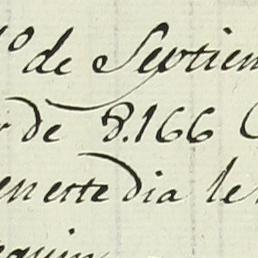 1º de Septiem
r de 8.166 C
en este dia le